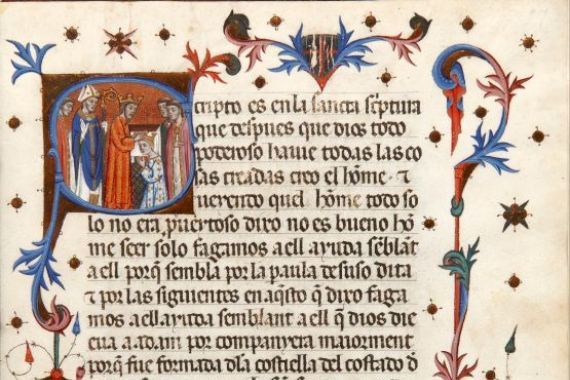 cripto es en la sancta sc̄ptura
que despues que dios todo
poderoso haue todas las co
sas creadas creo el hõme · ⁊
uerendo quel hõme todo so
lo no era, puertoso dixo no es bueno hõ
me seer solo fagamos a ell aiuda sēblāt
a ell porq̄ sembla por la paula desuso dita
⁊ por las siguientes en aq̄sto q̄ dixo faga
mos a ell aiuda semblant a ell q̄ dios die
eua a adam por companyera maiorment
porq̄ fue formada d̄la costiella del costado d̄